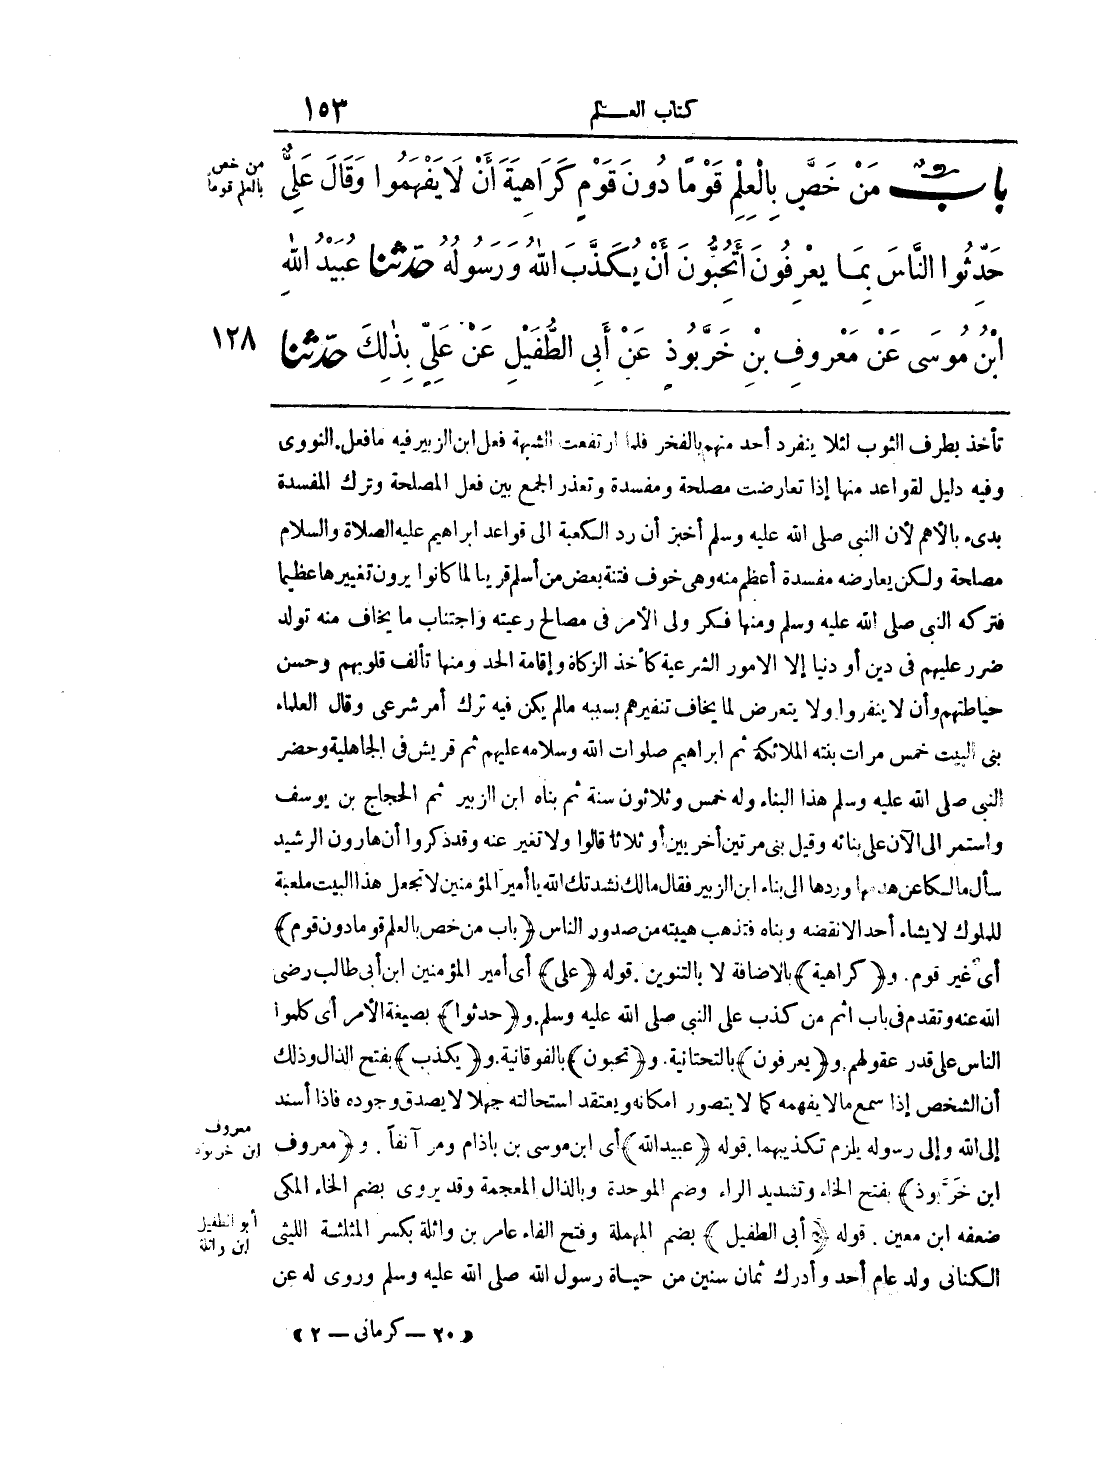 كتاب العـــلم ١٥٣
بابٌ مَنْ خَصَّ بِالْعِلْمِ قَوْمًا دُونَ قَوْمٍ كَرَاهِيَةَ أَنْ لَا يَفْهَمُوا وَقَالَ عَلِيٌّ
من خص
بالعلم قوما
حَدِّثُوا النَّاسَ بِمَا يعْرِفُونَ أَتُحِبُّونَ أَنْ يُكَذَّبَ اللهُ وَرَسُولُهُ حدّثنا عُبَيْدُ اللهِ
ابْنُ مُوسَى عَنْ مَعْرُوفِ بنِ خَرَّبُوذٍ عَنْ أَبِى الطُّفَيْلِ عَنْ عَلِيٍّ بِذٰلِكَ حدّثنا
١٢٨
تأخذ بطرف الثوب لئلا ينفرد أحد منهم بالفخر فلما ارتفعت الشبهة فعل ابن الزبير فيه مافعل. النووى
وفيه دليل لقواعد منها إذا تعارضت مصلحة ومفسدة وتعذر الجمع بين فعل المصلحة وترك المفسدة
بدىء بالأهم لأن النبى صلى الله عليه وسلم أخبر أن رد الكعبة الى قواعد ابراهيم عليه الصلاة والسلام
مصلحة ولكن يعارضه مفسدة أعظم منه وهى خوف فتنة بعض من أسلم قريبا لما كانوا يرون تغييرها عظيما
فتركه النبى صلى الله عليه وسلم ومنها فكر ولى الأمر فى مصالح رعيته واجتناب ما يخاف منه تولد
ضرر عليهم فى دين أو دنيا إلا الامور الشرعية كأخذ الزكاة وإقامة الحد ومنها تألف قلوبهم وحسن
حياطتهم وأن لا ينفروا ولا يتعرض لما يخاف تنفيرهم بسببه مالم يكن فيه ترك أمر شرعى وقال العلماء
بنى البيت خمس مرات بنته الملائكة ثم ابراهيم صلوات الله وسلامه عليهم ثم قريش فى الجاهلية وحضر
النبى صلى الله عليه وسلم هذا البناء وله خمس وثلاثون سنة ثم بناه ابن الزبير ثم الحجاج بن يوسف
واستمر الى الآن على بنائه وقيل بنى مرتين أخريين أو ثلاثا قالوا ولا تغير عنه وقد ذكروا أن هارون الرشيد
سأل مالكا عن هدمها وردها الى بناء ابن الزبير فقال مالك نشدتك الله يا أمير المؤمنين لا تجعل هذا البيت ملعبة
للملوك لا يشاء أحد الا نقضه وبناه فتذهب هيبته من صدور الناس ﴿باب من خص بالعلم قوما دون قوم﴾
أى غير قوم. و﴿كراهية﴾ بالاضافة لا بالتنوين. قوله ﴿على﴾ أى أمير المؤمنين ابن أبى طالب رضى
الله عنه وتقدم فى باب اثم من كذب على النبى صلى الله عليه وسلم. و﴿حدثوا﴾ بصيغة الأمر أى كلموا
الناس على قدر عقولهم. و﴿يعرفون﴾ بالتحتانية. و﴿تحبون﴾ بالفوقانية. و﴿يكذب﴾ بفتح الذال وذلك
أن الشخص إذا سمع مالا يفهمه كما لا يتصور امكانه ويعتقد استحالته جهلا لا يصدق وجوده فاذا أسند
إلى الله وإلى رسوله يلزم تكذيبهما. قوله ﴿عبيد الله﴾ أى ابن موسى بن باذام ومر آنفاً. و﴿معروف
معروف
ابن خربوذ
ابن خَرَّبوذ﴾ بفتح الخاء وتشديد الراء وضم الموحدة وبالذال المعجمة وقد يروى بضم الخاء المكى
ضعفه ابن معين. قوله ﴿أبى الطفيل﴾ بضم المهملة وفتح الفاء عامر بن واثلة بكسر المثلثة الليثى
أبو الطفيل
ابن واثلة
الكنانى ولد عام أحد وأدرك ثمان سنين من حياة رسول الله صلى الله عليه وسلم وروى له عن
﴿٢٠ – كرمانى – ٢﴾